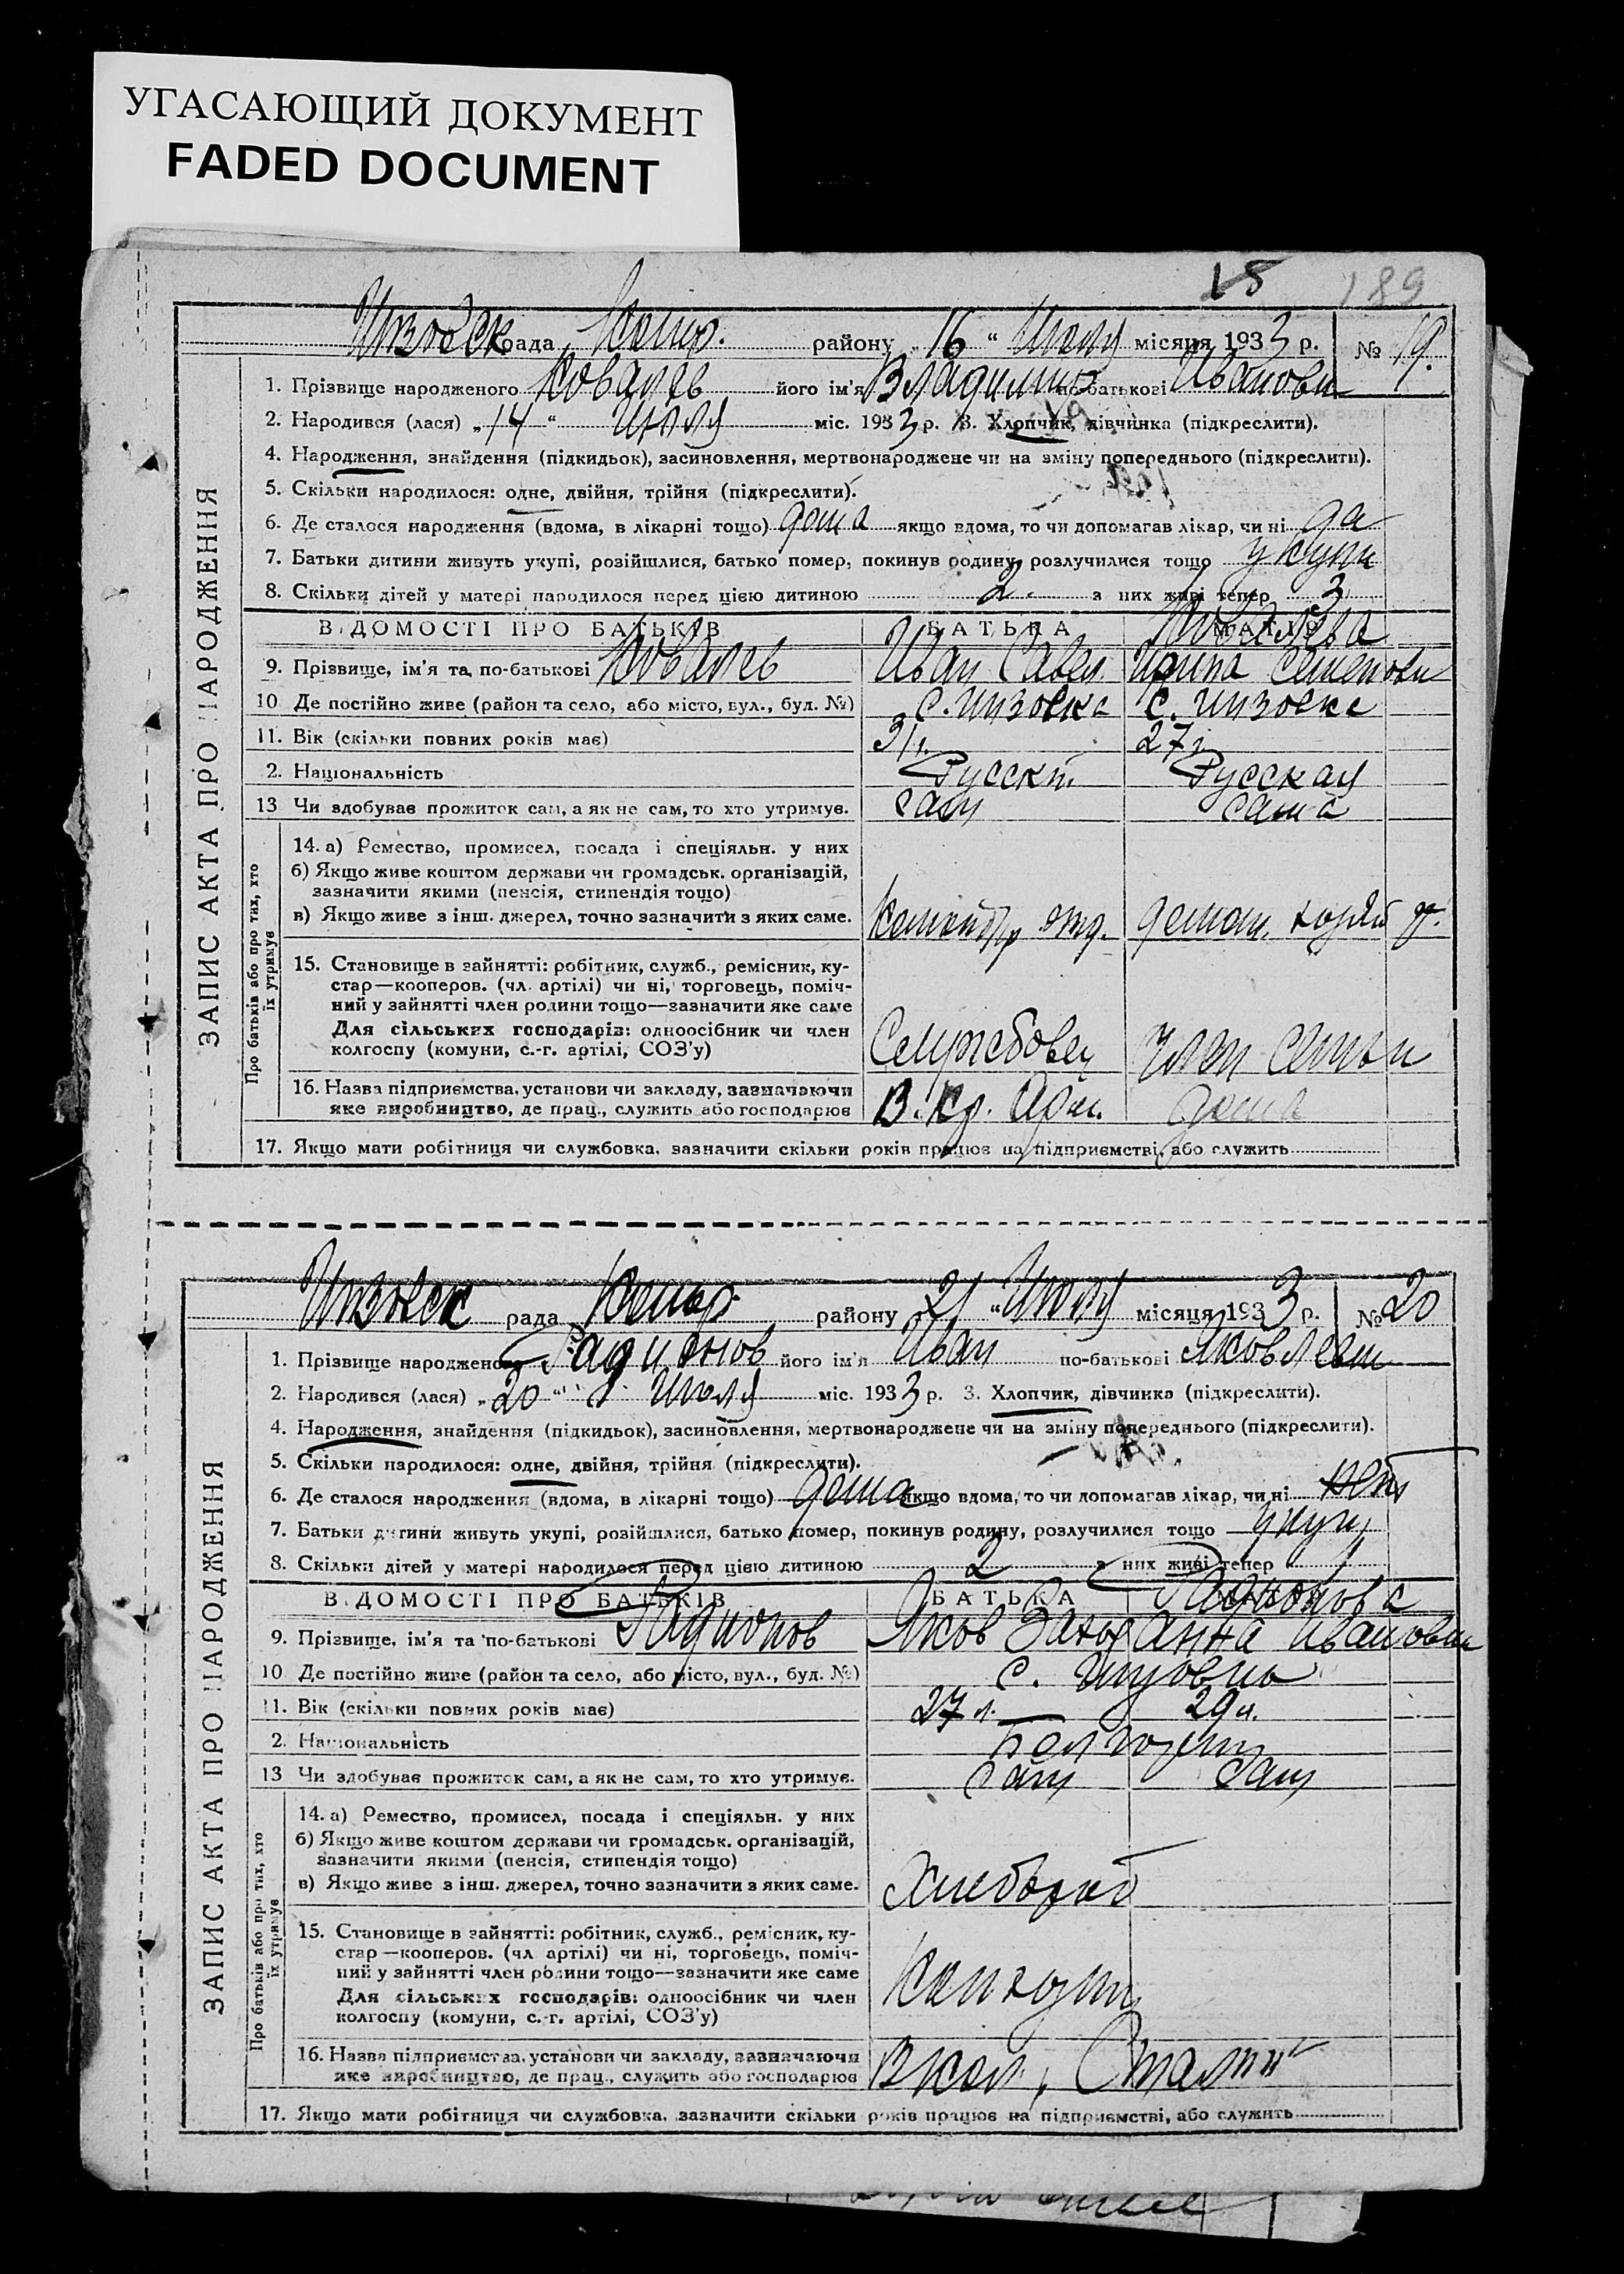 УГАСАЮЩИЙ ДОКУМЕНТ
FADED DOCUMENT
15 189
рада району „16“ місяця 1933 р. № 19.
1. Прізвище народженого Ковалев його ім'я Владимир по-батькові Иванович
2. Народився (лася) „14“ Июля міс. 1933 р. 3. Хлопчик, дівчинка (підкреслити).
4. Народження, знайдення (підкидьок), засиновлення, мертвонароджене чи на зміну попереднього (підкреслити).
5. Скільки народилося: одне, двійня, трійня (підкреслити).
6. Де сталося народження (вдома, в лікарні тощо) дома якщо вдома, то чи допомагав лікар, чи ні да
7. Батьки дитини живуть укупі, розійшлися, батько помер, покинув родину, розлучилися тощо укупи
8. Скільки дітей у матері народилося перед цією дитиною 2. з них живі тепер 3
ВІДОМОСТІ ПРО БАТЬКІВ БАТЬКА МАТІР Ковалева
9. Прізвище, ім'я та по-батькові Ковалев Иван Савел. Ирина Семенови
10 Де постійно живе (район та село, або місто, вул., буд. №) с. с.
11. Вік (скільки повних років має) 31 г. 27 г.
2. Національність Русск. Русская
13 Чи здобував прожиток сам, а як не сам, то хто утримує. сам сама
14. а) Ремество, промисел, посада і спеціяльн. у них
б) Якщо живе коштом держави чи громадськ. організацій,
зазначити якими (пенсія, стипендія тощо)
в) Якщо живе з інш. джерел, точно зазначити з яких саме. отд.
15. Становище в зайнятті: робітник, служб., ремісник, ку-
стар—кооперов. (чл. артілі) чи ні, торговець, поміч-
ний у зайнятті член родини тощо—зазначити яке саме
Для сільських господарів: одноосібник чи член
колгоспу (комуни, с.-г. артілі, СОЗ'у) Службовец член семьи
16. Назва підприємства, установи чи закладу, зазначаючи
яке виробництво, де прац., служить або господарює В. Кр. Арм. дома
17. Якщо мати робітниця чи службовка, зазначити скільки років працює на підприємстві, або служить
ЗАПИС АКТА ПРО НАРОДЖЕННЯ
Про батьків або про тих, хто
їх утримує
рада району „21“ Июля місяця 1933 р. № 20
1. Прізвище народженого Радионов його ім'я Иван по-батькові Яковлевич
2. Народився (лася) „20“ Июля міс. 1933 р. 3. Хлопчик, дівчинка (підкреслити).
4. Народження, знайдення (підкидьок), засиновлення, мертвонароджене чи на зміну попереднього (підкреслити).
5. Скільки народилося: одне, двійня, трійня (підкреслити).
6. Де сталося народження (вдома, в лікарні тощо) дома якщо вдома, то чи допомагав лікар, чи ні нет
7. Батьки дитини живуть укупі, розійшлися, батько помер, покинув родину, розлучилися тощо укупи
8. Скільки дітей у матері народилося перед цією дитиною 2 з них живі тепер 1
ВІДОМОСТІ ПРО БАТЬКІВ БАТЬКА Радионова
9. Прізвище, ім'я та по-батькові Радионов Яков Анна Ивановна
10 Де постійно живе (район та село, або місто, вул., буд. №) с.
11. Вік (скільки повних років має) 27 л. 29 л.
2. Національність
13 Чи здобував прожиток сам, а як не сам, то хто утримує. сам сам
14. а) Ремество, промисел, посада і спеціяльн. у них
б) Якщо живе коштом держави чи громадськ. організацій,
зазначити якими (пенсія, стипендія тощо)
в) Якщо живе з інш. джерел, точно зазначити з яких саме. Хлебороб
15. Становище в зайнятті: робітник, служб., ремісник, ку-
стар—кооперов. (чл артілі) чи ні, торговець, поміч-
ний у зайнятті член родини тощо—зазначити яке саме
Для сільських господарів: одноосібник чи член
колгоспу (комуни, с.-г. артілі, СОЗ'у)
16. Назва підприємства, установи чи закладу, зазначаючи
яке виробництво, де прац., служить або господарює
17. Якщо мати робітниця чи службовка, зазначити скільки років працює на підприємстві, або служить
ЗАПИС АКТА ПРО НАРОДЖЕННЯ
Про батьків або про тих, хто
їх утримує